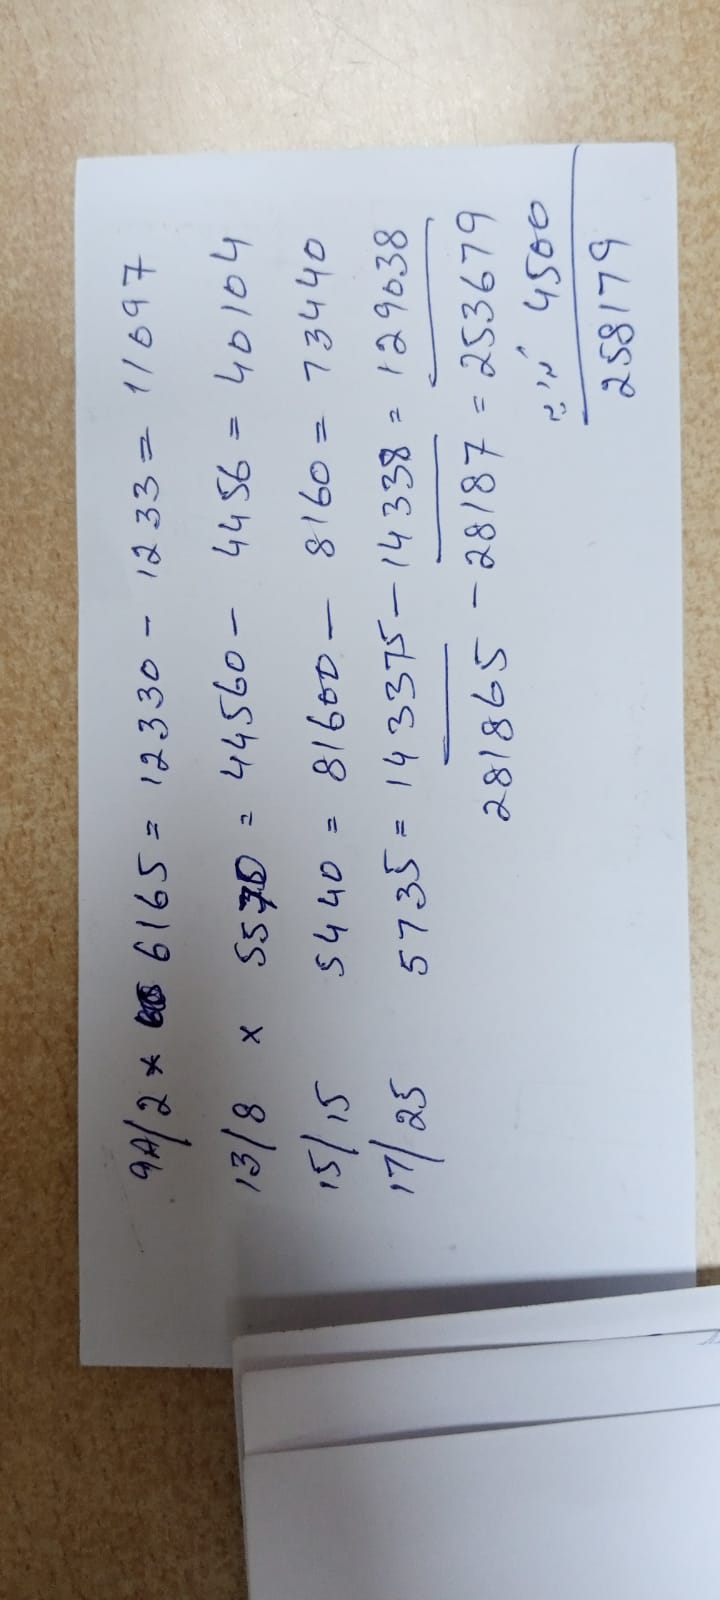 9A/2 * 6165 = 12330 - 1233 = 11097
13/8 x 5570 = 44560 - 4456 = 40104
15/15 5440 = 81600 - 8160 = 73440
17/25 5735 = 143375 - 14338 = 129038
281865 - 28187 = 253679
4500
258179